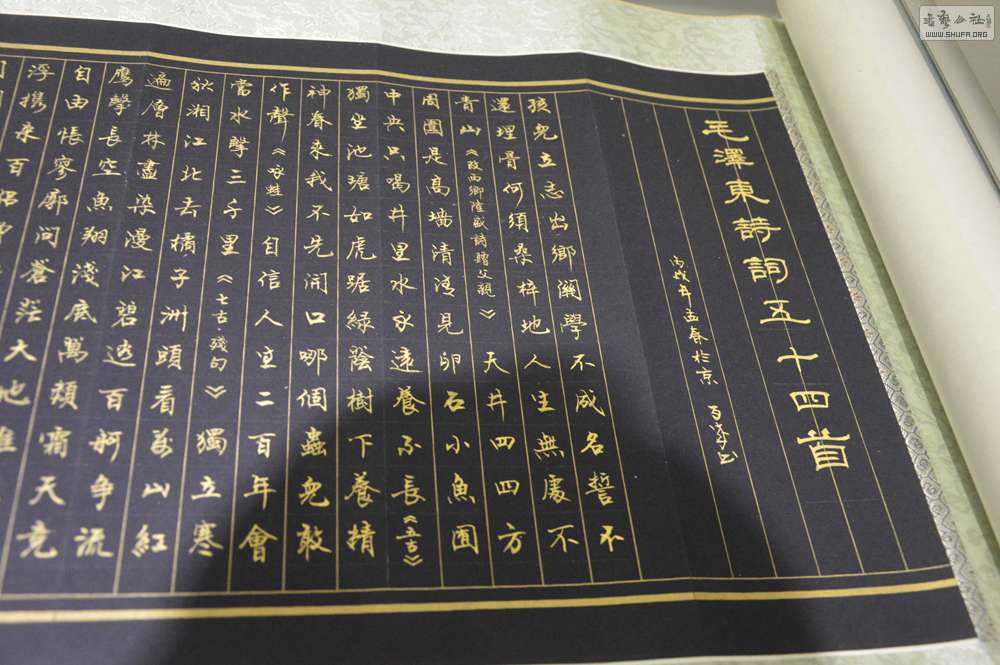 毛澤東詩詞五十四首
丙戌年孟春於京
孩兒立志出鄉關學不成名誓不
還埋骨何須桑梓地人生無處不
青山《改西鄉隆盛詩贈父親》天井四四方
周圍是高墻清清見卵石小魚囿
中央只喝井里水永遠養不長《五古》
獨坐池塘如虎踞綠蔭樹下養精
神春來我不先開口哪個蟲兒敢
作聲《咏蛙》自信人生二百年會
當水擊三千里《七古·殘句》獨立寒
秋湘江北去橘子洲頭看萬山紅
遍層林盡染漫江碧透百舸爭流
鷹擊長空魚翔淺底萬類霜天競
自由悵寥廓問蒼茫大地誰
浮攜來百侶
書藝公社
WWW.SHUFA.ORG